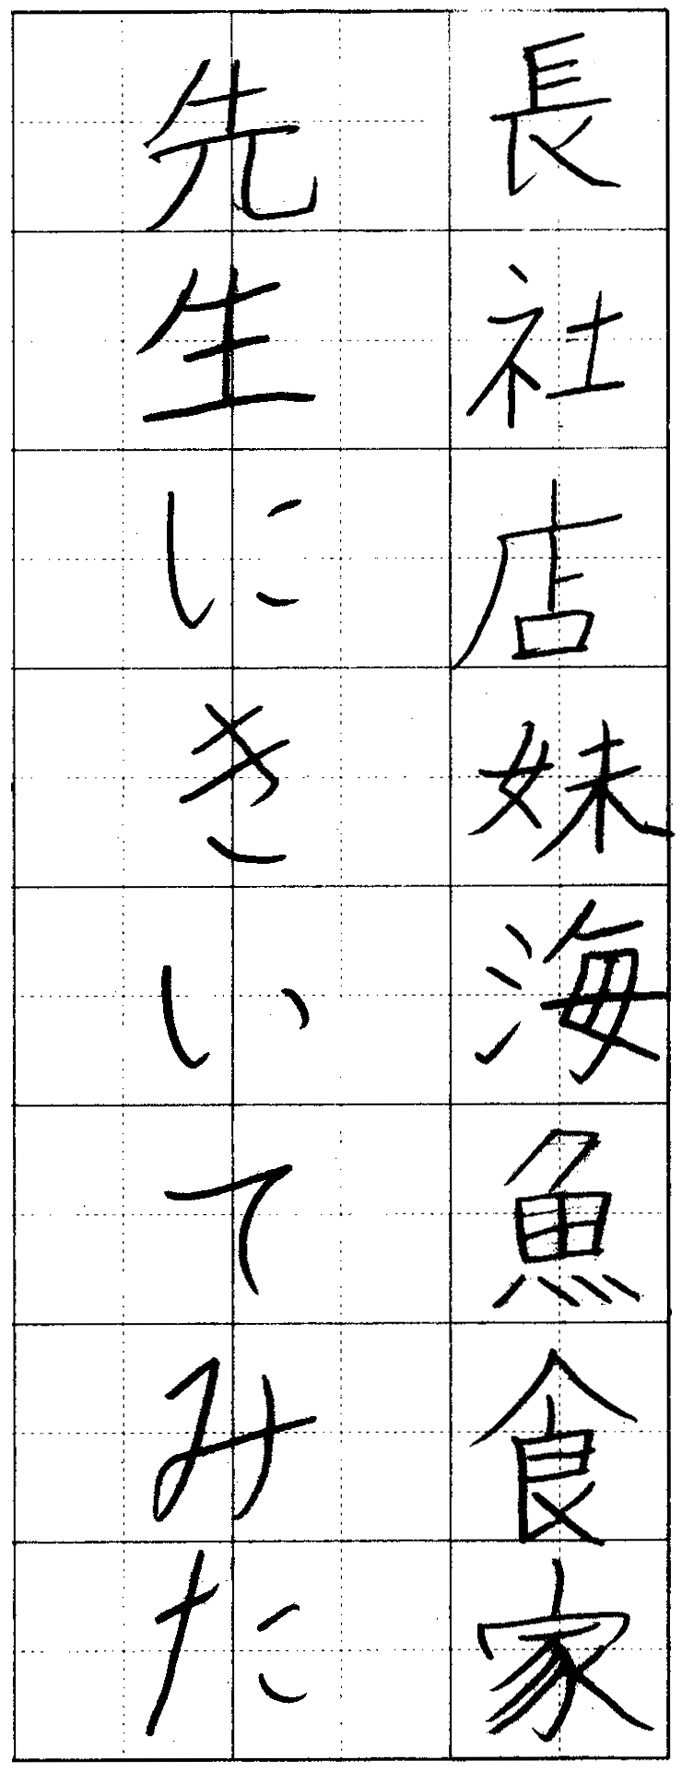 長社店妹海魚食家
先生にきいてみた